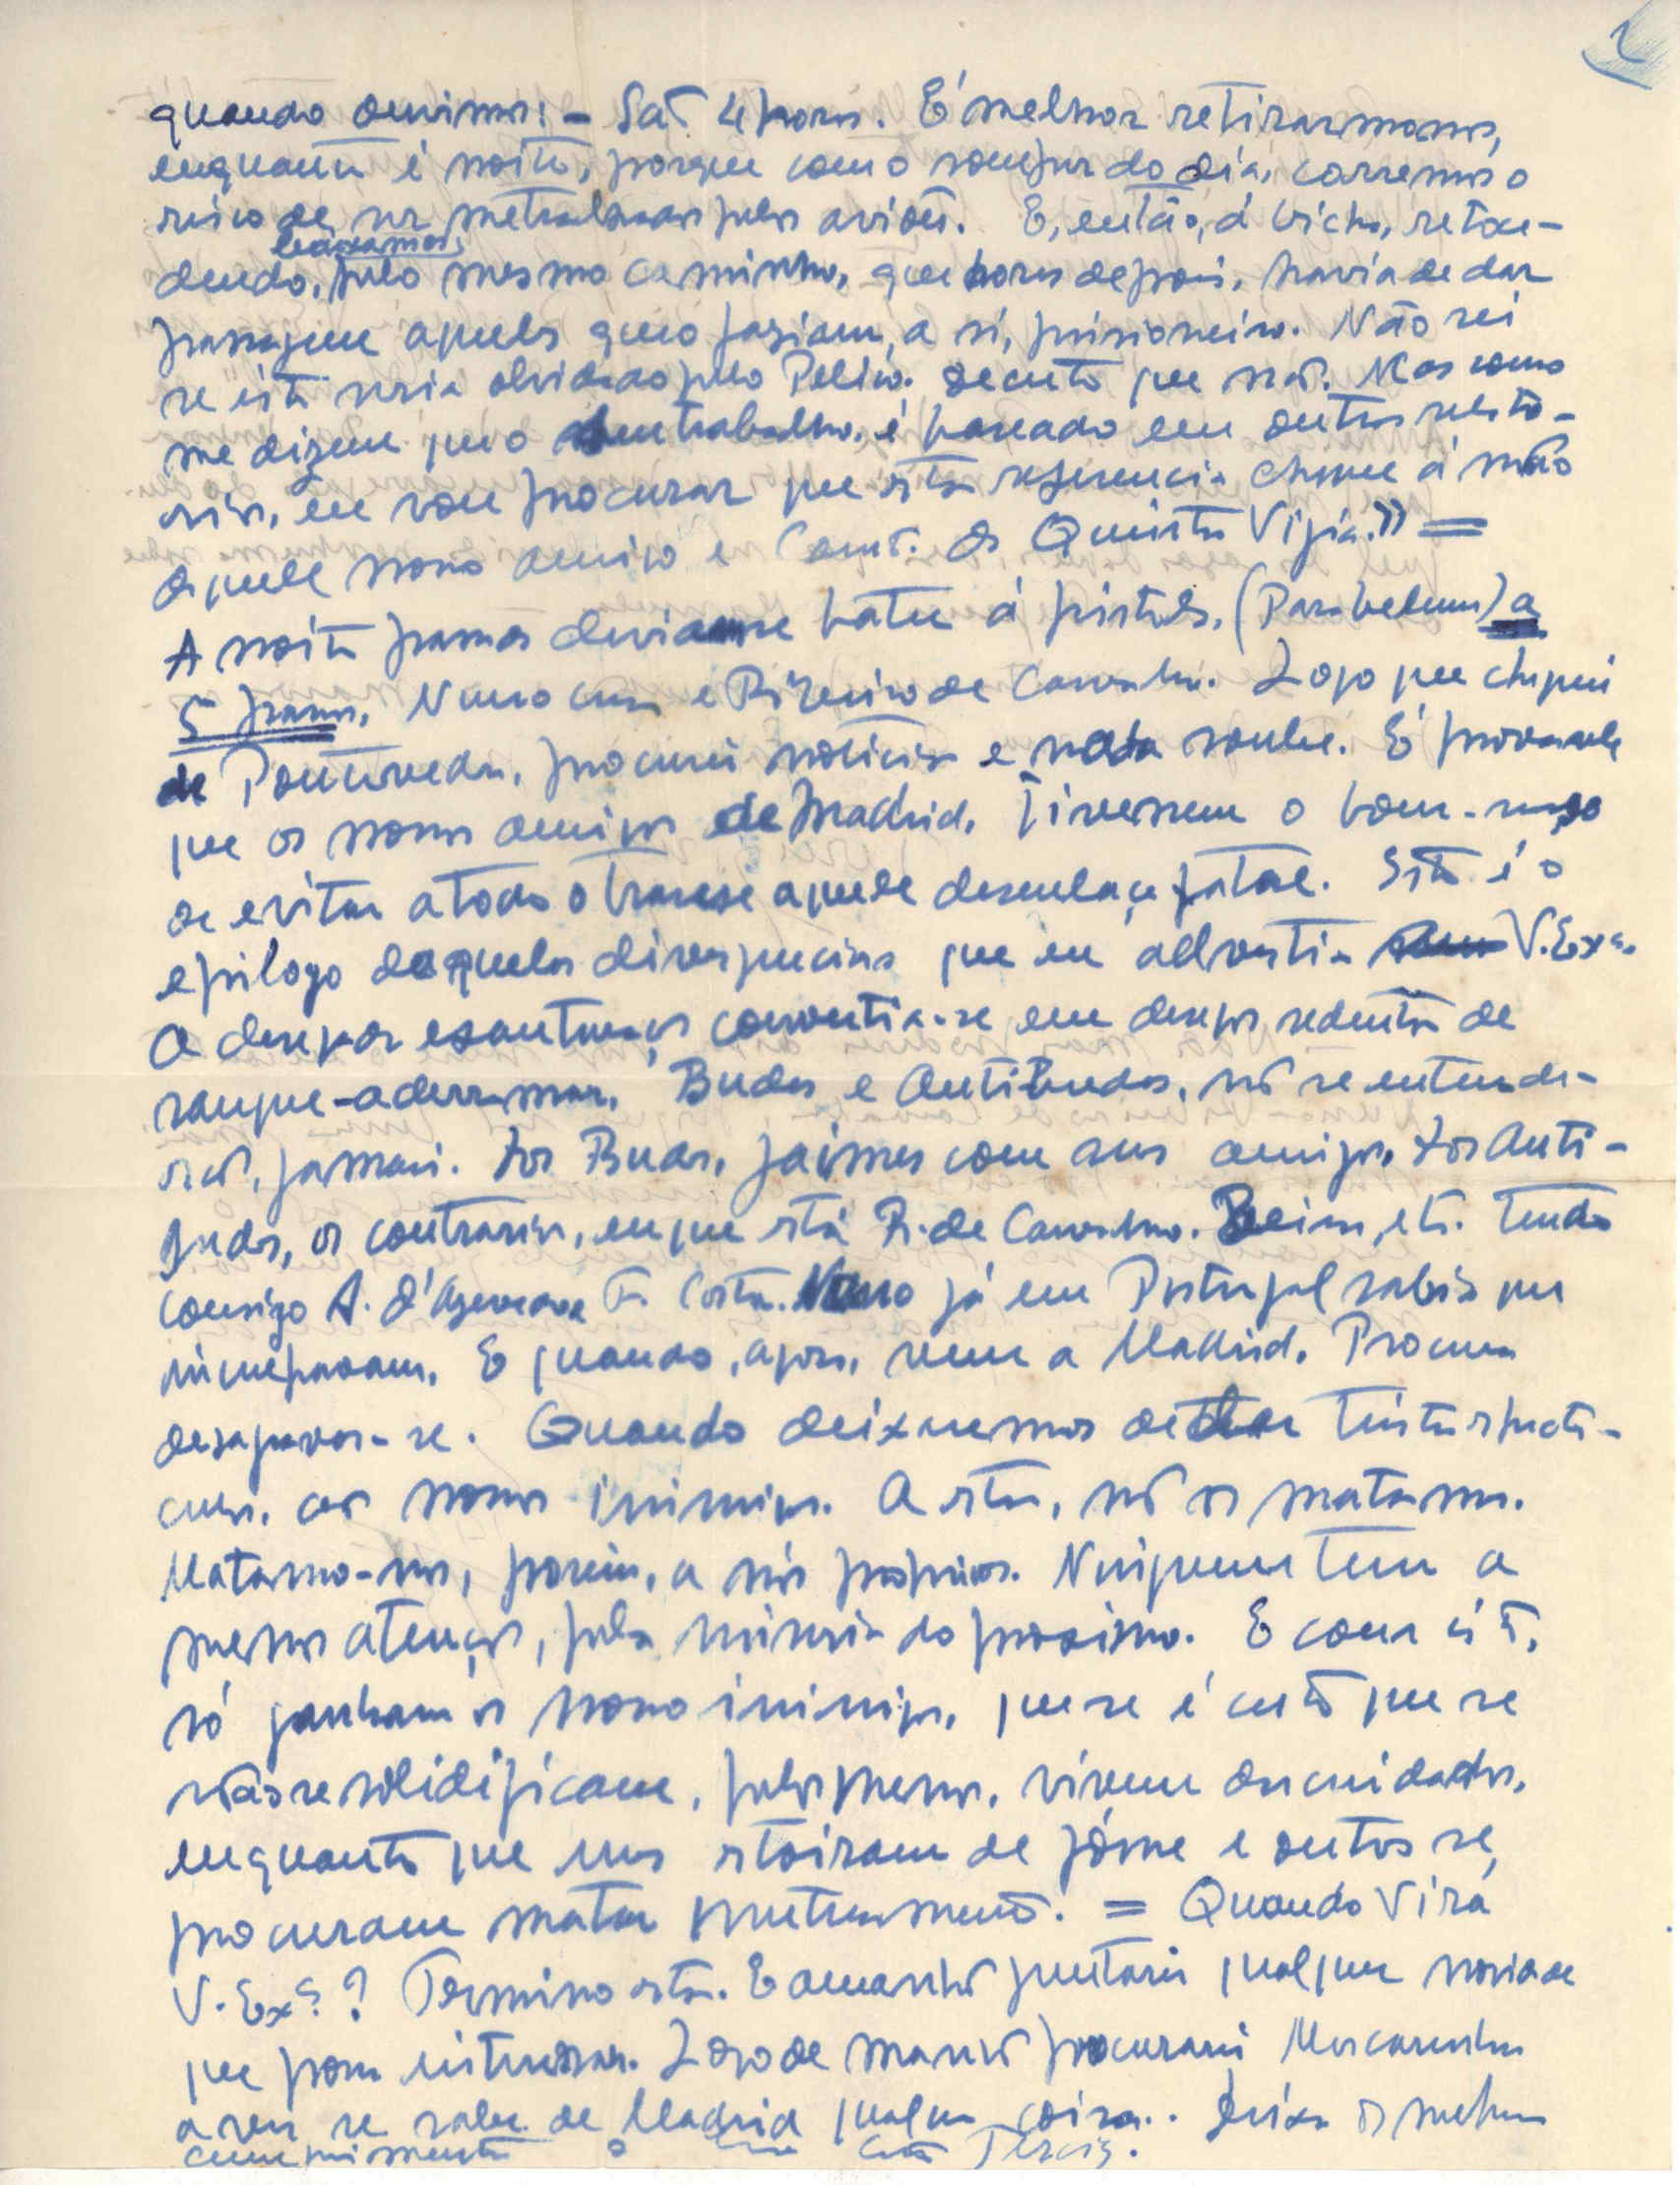 2
quando ouvimos: - Saõ 4 horas. É melhor retirarmonos,
enquanto é noite, porque com o romper do dia, corremos o
risco de ser metralhados pelos aviões. E, então, á bicha, retoce-
dendo, pelo mesmo caminho, que horas depois, havia de dar
passagem aqueles que o faziam, a si, prisioneiro. Não sei
se isto seria olvidado pelo Pelico. decerto que naõ. Mas como
me dizem que o seu trabalho, é baseado em outros relato-
rios, eu vou procurar que esta referencia chegue á mão
daquele nosso amigo e Comt. da Quinta Vigia.» =
A noite passada deviam-se bater á pistola, (Parabelum) a
5 passos, Nuno Cruz e Ribeiro de Carvalho. Logo que cheguei
de Pontevedra, procurei noticias e nada soube. É provavel
que os nossos amigos de Madrid, tivessem o bom-senso
de evitar a todo o transe aquele desenlace fatal. Isto é o
epilogo daquelas divergencias que eu advertia V. Exª.
O desejo de exautoração convertia-se em desejo sedento de
sangue a derramar. Budas e Antibudas, naõ se entende-
raõ, jamais. Os Budas, Jaimes com seus amigos, os Anti-
budas, os contrarios, em que está R. de Carvalho. etc. tendo
consigo A. d'Azevedo e F. Costa. Nuno já em Portugal sabia que
E quando, agora, vem a Madrid. Procura
desagravar-se. Quando deixaremos de dar tristes espectá-
culos, aos nossos inimigos. A estes, naõ os matamos.
Matamo-nos, porém, a nós proprios. Ninguem tem a
menor atençaõ, pela miseria do proximo. E com isto,
só ganham os nossos inimigos, que se é certo que se
não se solidificam, pelo menos, vivem descuidados,
enquanto que uns estoiram de fóme e outros se
procuram matar mutuamente. = Quando virá
V. Exª.? Termino esta. E amanhã juntarei qualquer novidade
que possa interessar. Logo de manhã procurarei Mascarenhas
a ver se sabe de Madrid qualquer coisa..